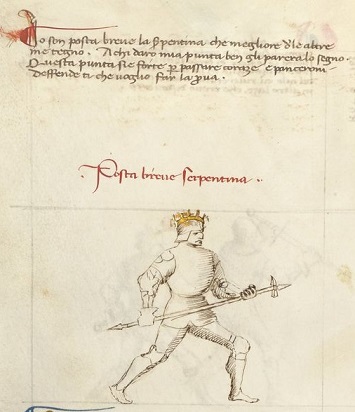 Io son posta breue la serpentina che megliore d'le altre
me tegno. A chi daro mia punta ben gli parera lo segno.
Questa punta sie forte p passare coraze e panceroni
deffende ti che uoglio far la pua.
Posta breue serpentina.